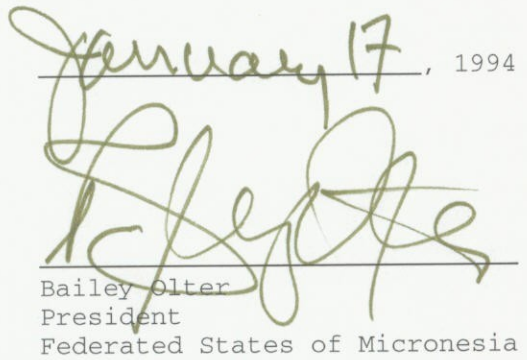 January 17, 1994
Bailey Olter
Bailey Olter
President
Federated States of Micronesia